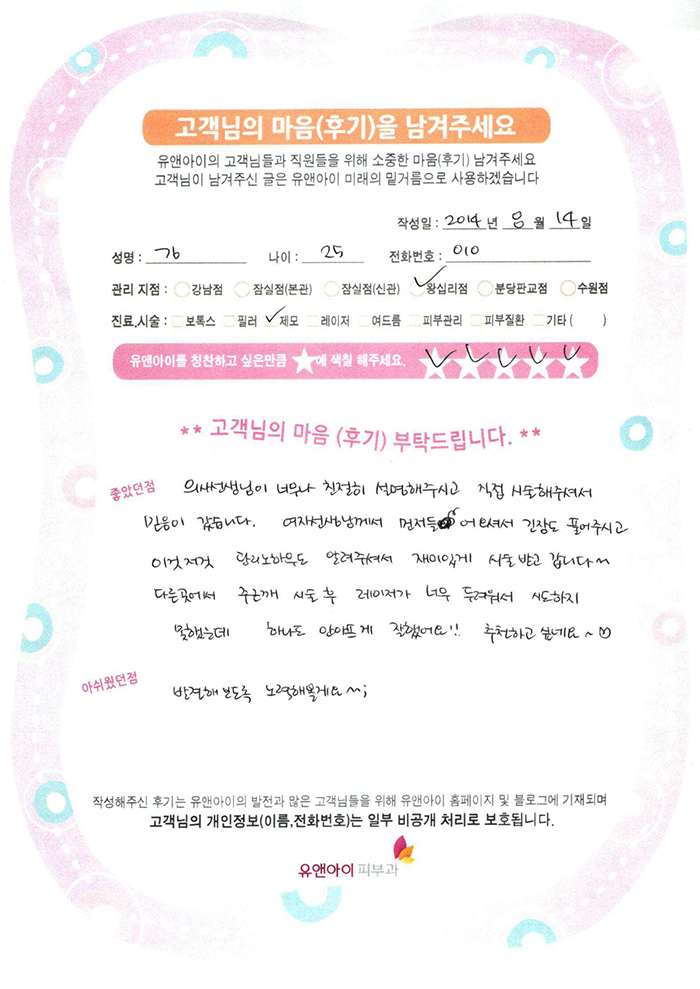 고객님의 마음(후기)을 남겨주세요
유앤아이의 고객님들과 직원들을 위해 소중한 마음(후기) 남겨주세요
고객님이 남겨주신 글은 유앤아이 미래의 밑거름으로 사용하겠습니다
작성일 : 2014 년 월 14 일
성명 : 나이 : 25 전화번호 : 010
관리 지점 : 강남점 잠실점(본관) 잠실점(신관) 왕십리점 분당판교점 수원점
진료,시술 : 보톡스 필러 제모 레이저 여드름 피부관리 피부질환 기타 ( )
유앤아이를 칭찬하고 싶은만큼 ★에 색칠 해주세요. ★★★★★
** 고객님의 마음 (후기) 부탁드립니다. **
좋았던점 의사선생님이 너무나 친절히 설명해주시고 직접 시술해주셔서
믿음이 갔습니다. 여자선생님께서 먼저 어오셔서 긴장도 풀어주시고
이것저것 관리노하우도 알려주셔서 재미있게 시술받고 갑니다~
다른곳에서 주근깨 시술 후 레이저가 너무 두려워서 시도하지
못했는데 하나도 안아프게 잘했어요!! 추천하고 싶네요~♡
아쉬웠던점 발견해보도록 노력해볼게요~;
작성해주신 후기는 유앤아이의 발전과 많은 고객님들을 위해 유앤아이 홈페이지 및 블로그에 기재되며
고객님의 개인정보(이름,전화번호)는 일부 비공개 처리로 보호됩니다.
유앤아이 피부과